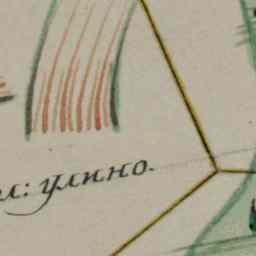 л: улино.